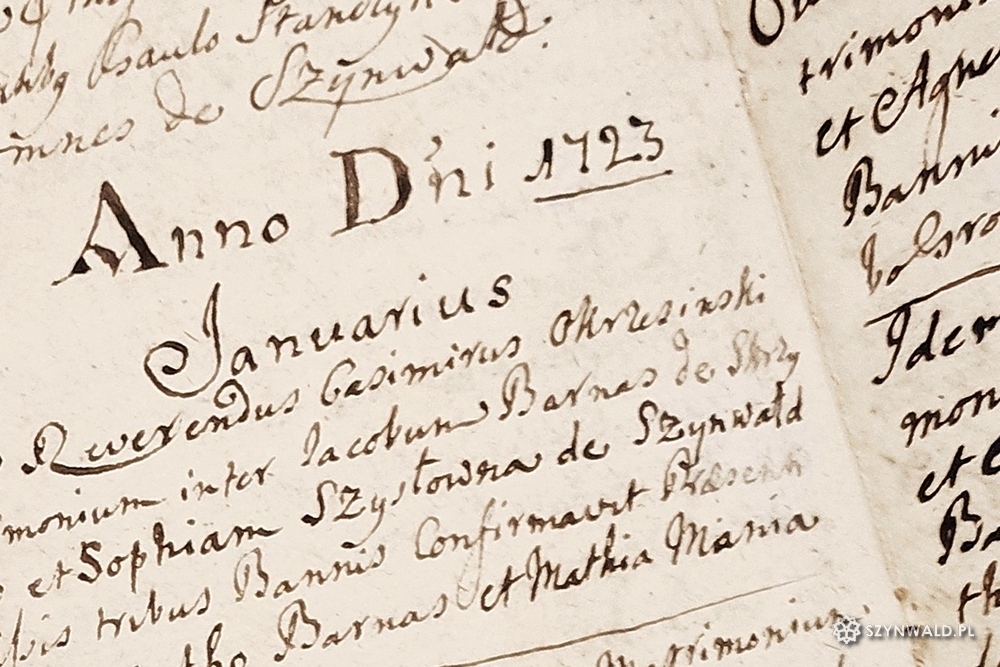 Paulo
omnes de Szynwałd.
Anno D'ni 1723
Januarius
Reverendus Casimirus Okrzesinski
imonium inter Jacobum Barnas de Skrzy
et Sophiam Szysłowna de Szynwałd
tribus Bannis Confirmavit Præsenti
Barnas et Mathia Mania
Matrimonium
trimoni
et Agne
Banni
Idem
mon
et
Ba
th
SZYNWALD.PL